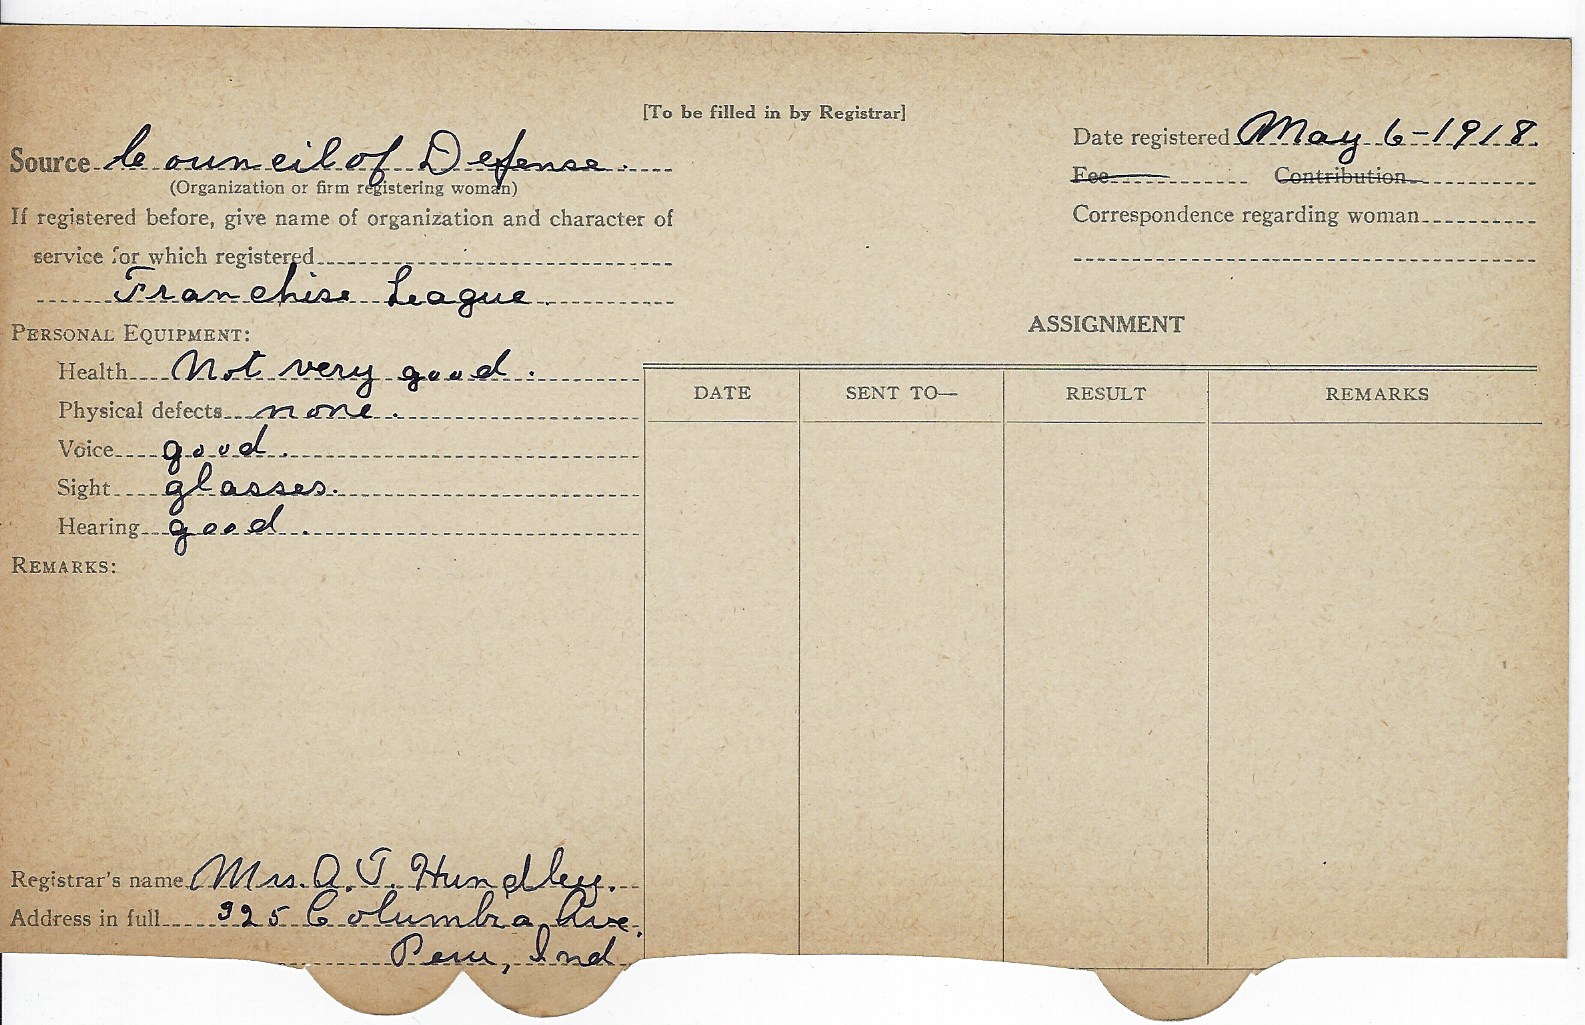 [To be filled in by Registrar]
Source Council of Defense.
(Organization or firm registering woman)
If registered before, give name of organization and character of
service for which registered
Franchise League.
Date registered May 6-1918.
Fee Contribution
Correspondence regarding woman
PERSONAL EQUIPMENT:
Health Not very good.
Physical defects none.
Voice good.
Sight glasses.
Hearing good.
REMARKS:
ASSIGNMENT
DATE SENT TO— RESULT REMARKS
Registrar's name Mrs. A. T. Hundley.
Address in full 325 Columbia Ave.
Peru, Ind.